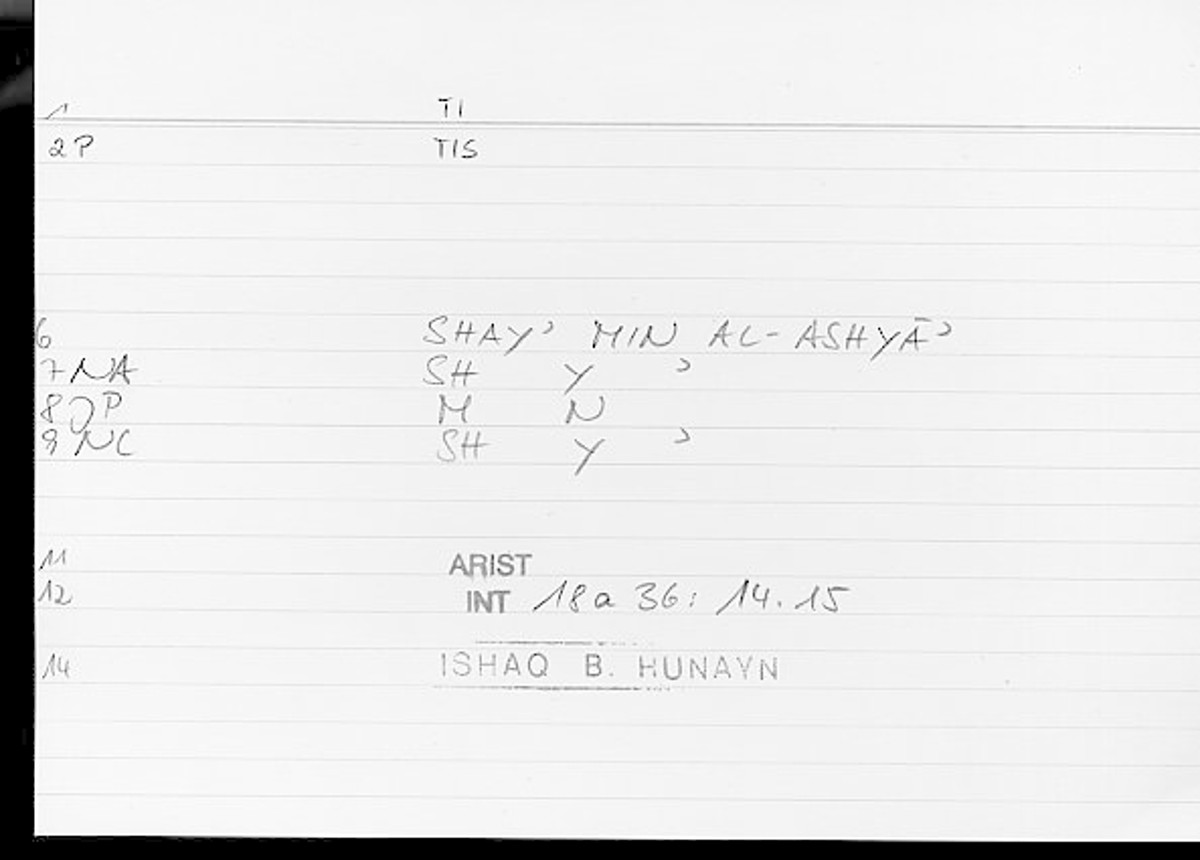 1 TI
2P TIS
6 SHAYʾ MIN AL-ASHYĀʾ
7 NA SH Y ʾ
8 P M N
9 NC SH Y ʾ
11 ARIST
12 INT 18a 36: 14.15
14 ISHAQ B. HUNAYN